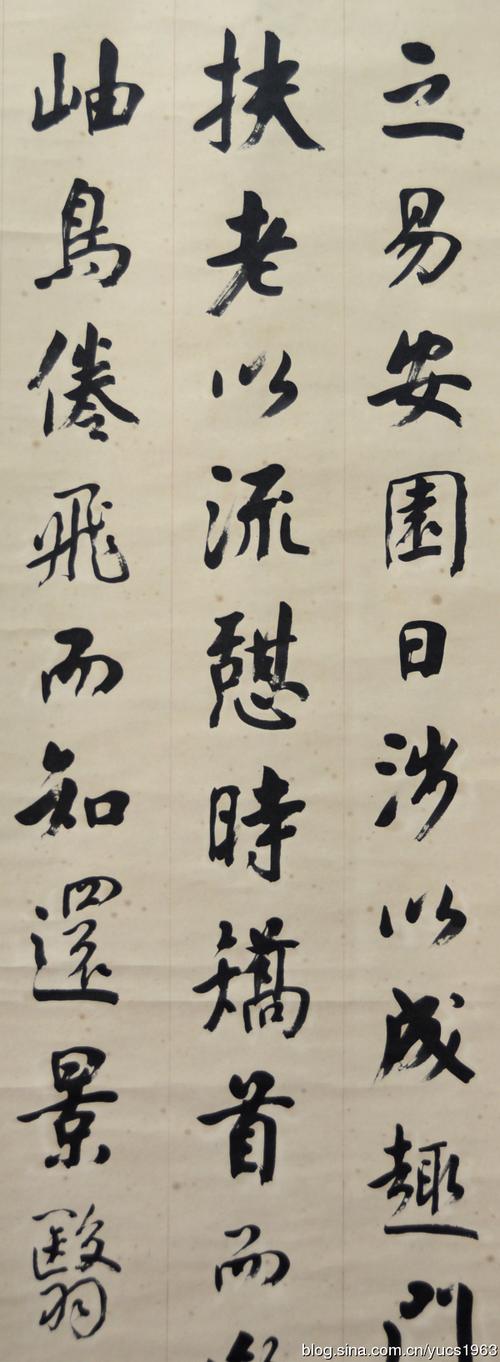 之易安園日涉以成趣門
扶老以流憩時矯首而
岫鳥倦飛而知還景翳
blog.sina.com.cn/yucs1963